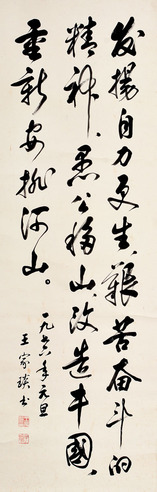 发扬自力更生、艰苦奋斗的
精神、愚公移山、改造中国、
重新安排河山。
一九七六年元旦
王家琰书